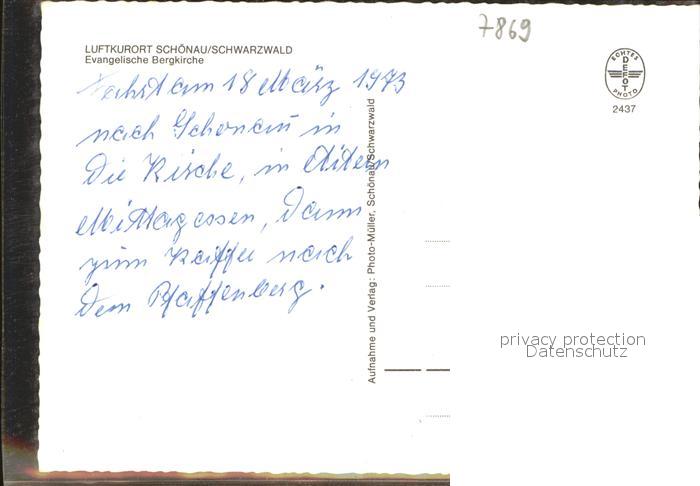 7869
LUFTKURORT SCHÖNAU/SCHWARZWALD
Evangelische Bergkirche
Fahrt am 18 März 1973
nach Schönau in
Die Kirche, in Aitern
Mittagessen, Dann
zum Kaffee nach
Dem Pfaffenberg.
Aufnahme und Verlag: Photo-Müller, Schönau/Schwarzwald
ECHTES
DEFOT
PHOTO
2437
privacy protection
Datenschutz